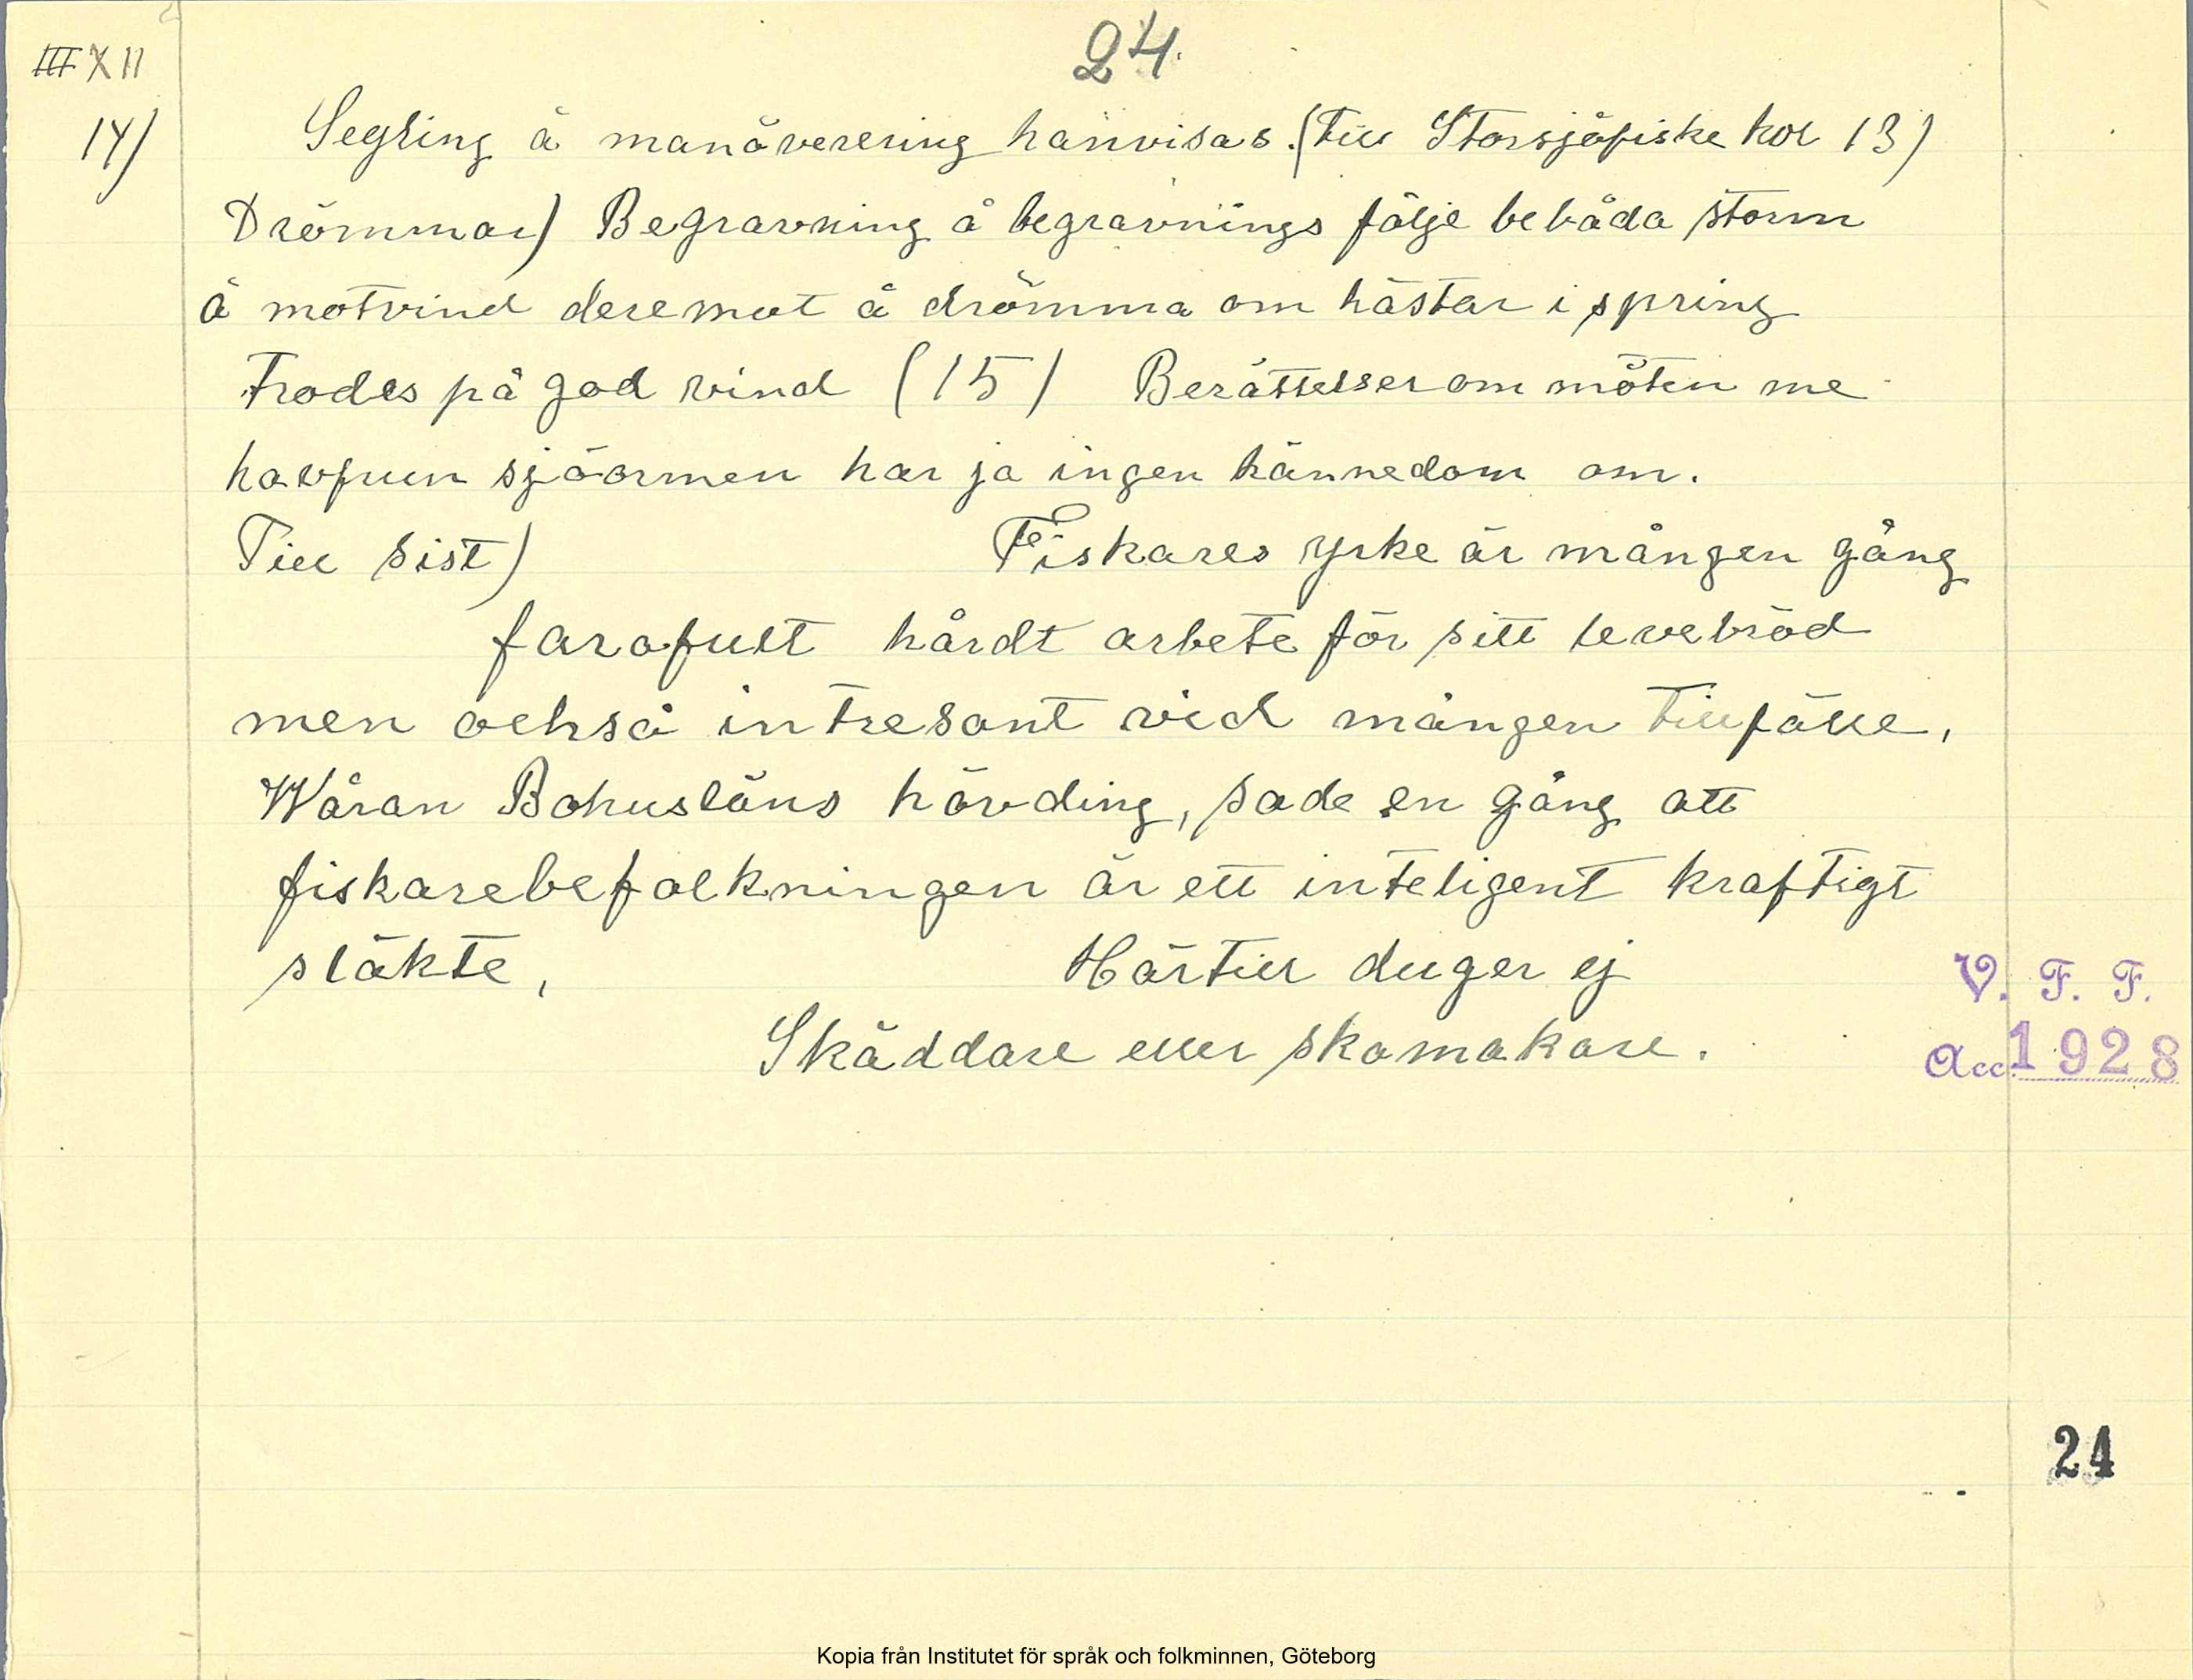 24.
III XII
14) Segling å manöverering hänvisas. (till Storsjöfiske kol 13)
Drömmar) Begravning å begravnings följe bebåda storm
å motvind deremot å drömma om hästar i spring
Trodes på god vind (15) Berättelser om möten me
havfrun sjöormen har ja ingen kännedom om.
Till sist) Fiskares yrke är mången gång
farofullt hårdt arbete för sitt levebröd
men ochså intresant vid mången tillfälle,
Wåran Bohusläns hövding, sade en gång att
fiskarebefolkningen är ett inteligent kraftigt
släkte, Härtill duger ej
Skäddare eller skomakare.
V. F. F.
Acc. 1928
24
Kopia från Institutet för språk och folkminnen, Göteborg